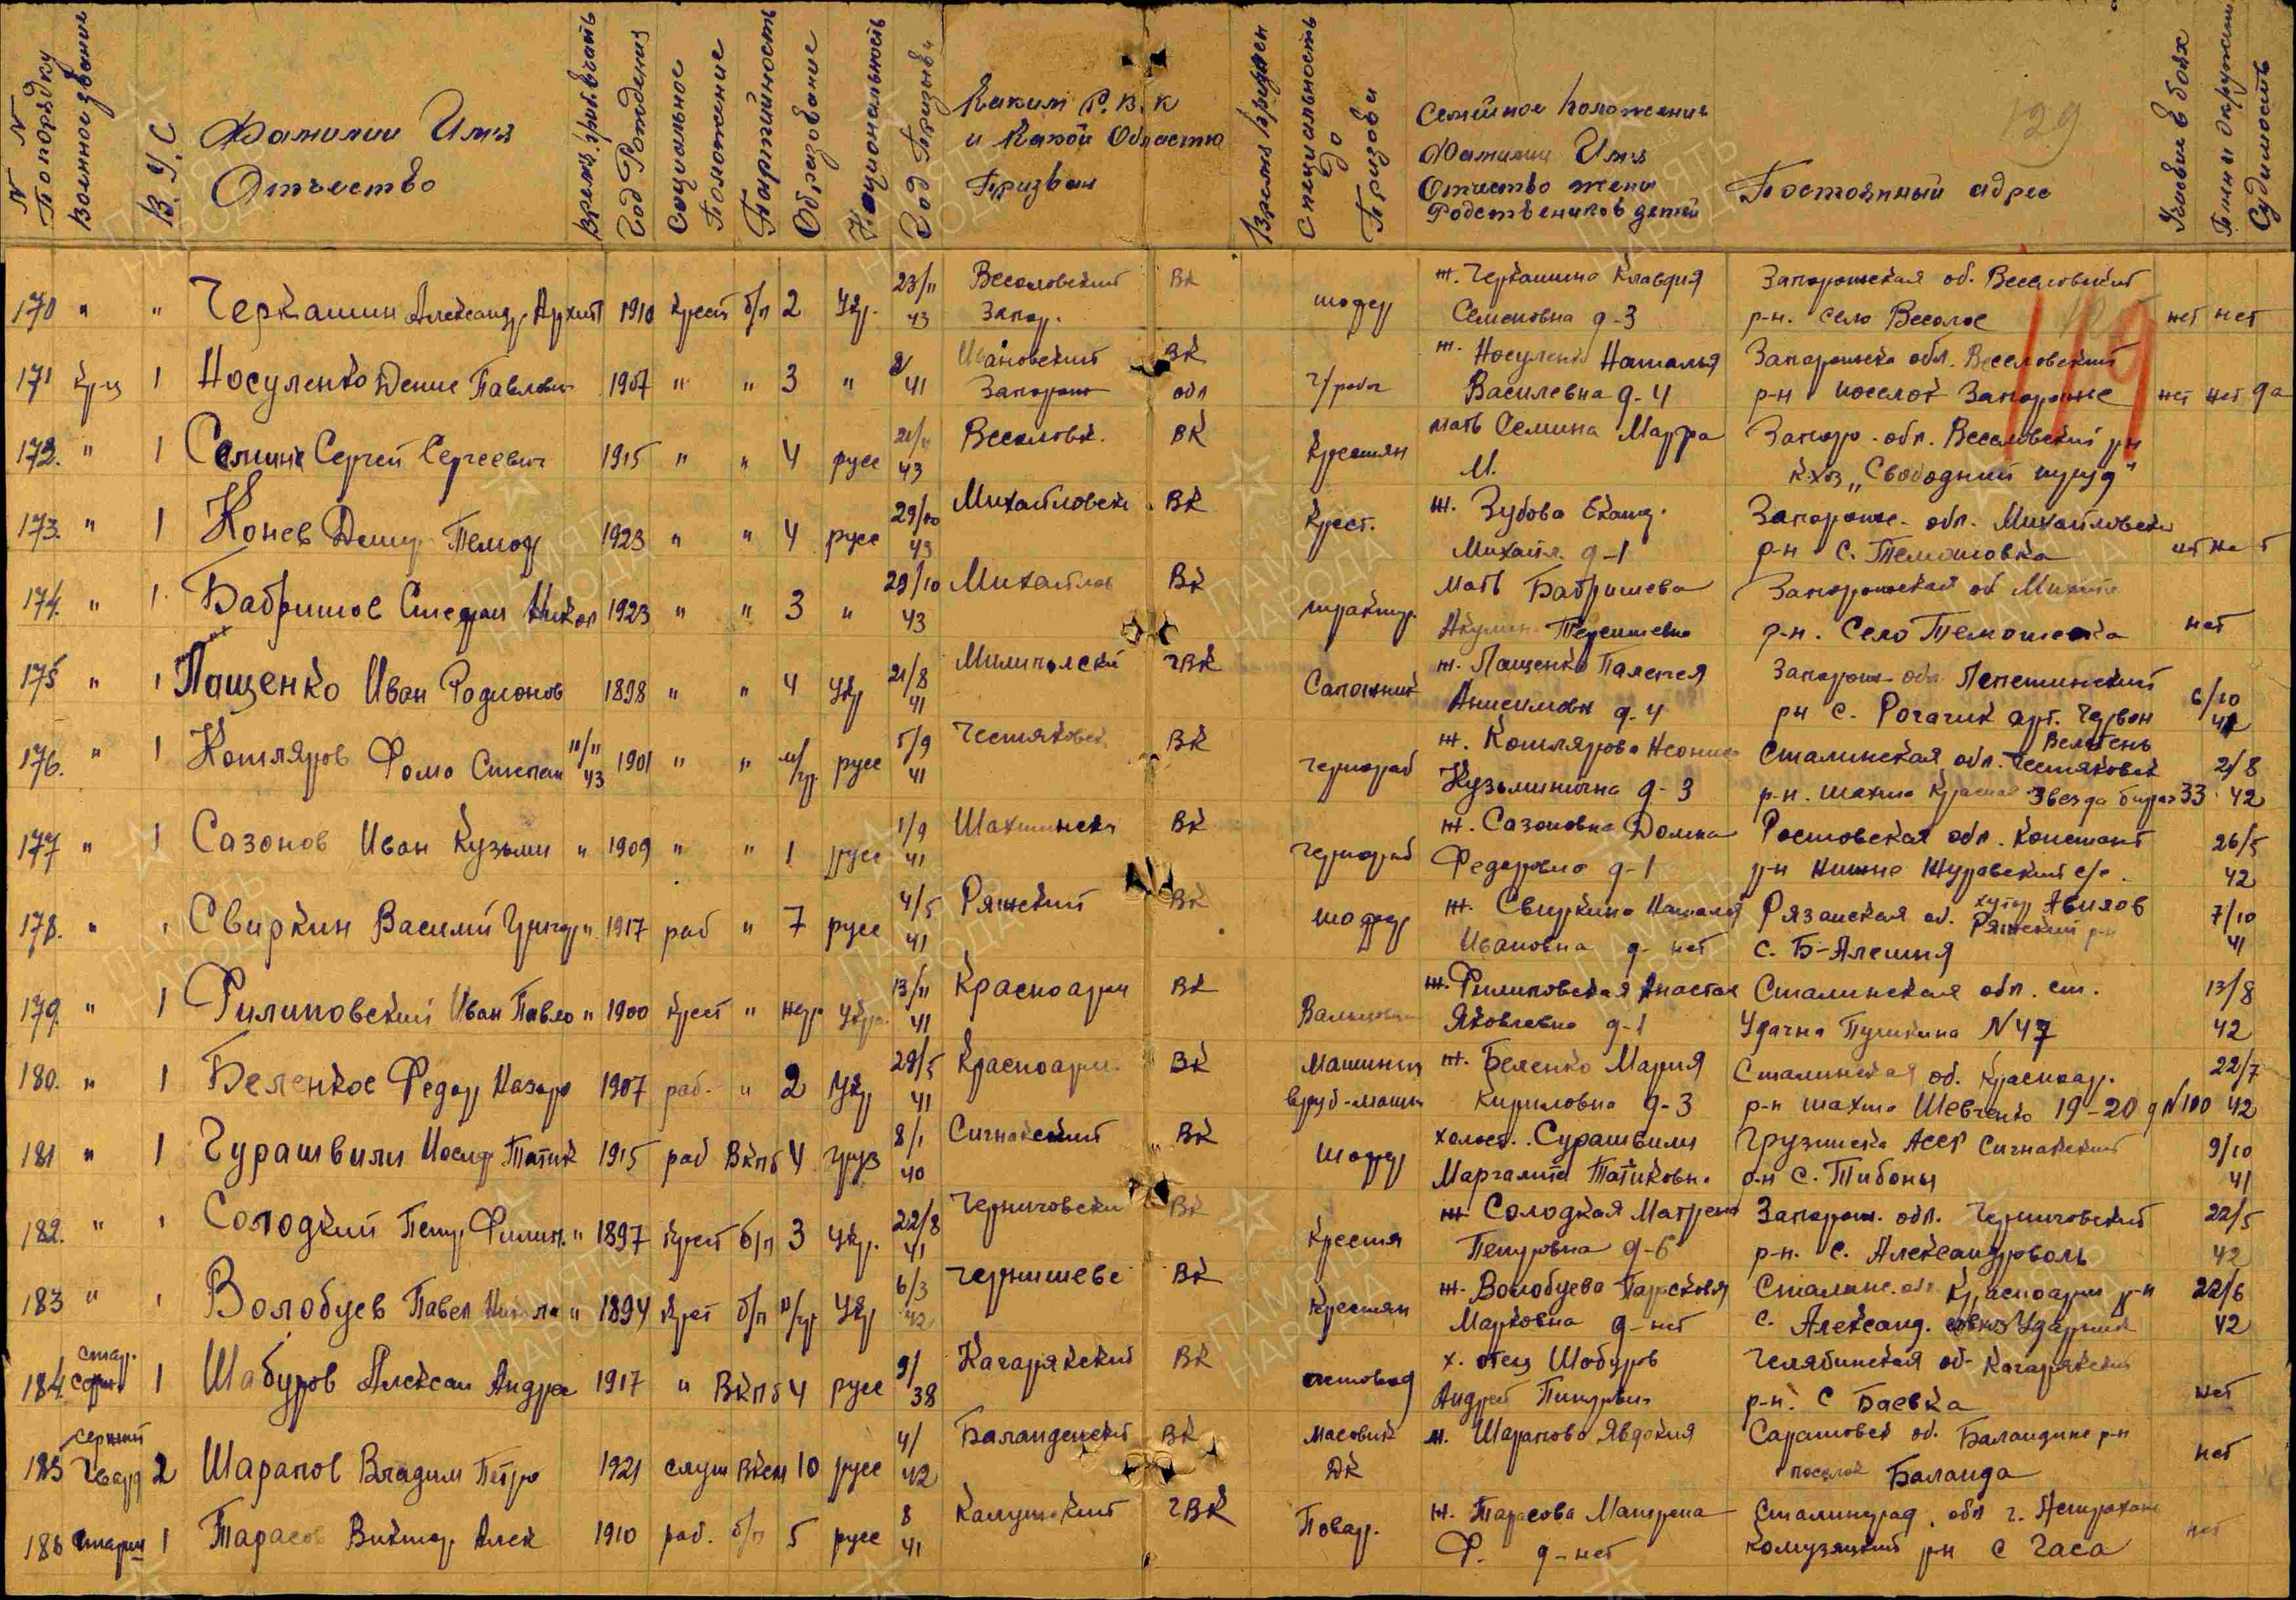 N N По порядку
Военное звание
В.У.С
Фамилии Имя Отчество
Год Рождения
Социальное Положение
Партийность
Образование
Национальность
Год Призыва
Каким Р.В.К и Какой Областю Призван
Специальность до Призова
Семейное Положение Фамилии Имя Отчество жены Родственников детей
Постоянный адрес
129
Судимость
119
170 " " Черкашин Александр Архип 1910 крест б/п 2 Укр. 23/11 43 Веселовский Запор. ВК шофер ж. Черкашина Клавдия Семеновна д-3 Запорожская об. Веселовский р-н. село Веселое нет нет
171 кр-ц 1 Носуленко Денис Павлович 1907 " " 3 " 41 Ивановский Запорож ВК обл ч/рабоч ж. Носуленко Наталья Василевна д-4 Запорожска обл. Веселовский р-н поселок Запорожие нет нет да
172. " 1 Сергей Сергеевич 1915 " " 4 русс 43 Веселовск. ВК крестян мать Семина Марфа М. Запоро. обл. Веселовский рн к-хоз „Свободний труд"
173. " 1 Конев 1923 " " 4 русс 29/10 43 Михайловски ВК Крест. ж. Зубова Екатер. Михайл. д-1 Запорожс. обл. Михайловски р-н с. Темошовка
174. " 1. Бабришов Стефан Никол 1923 " " 3 " 29/10 43 Михайлов ВК трактор. мать Бабришева Акулин Терентевна Запорожская об Михай р-н. Село нет
175 " 1 Пащенко Иван Родионов 1898 " " 4 Укр 21/8 41 ГВК Сапожник ж. Пащенко Палагея Анисимовн д-4 Запорож обл. Лепетинский рн с. Рогачик арт. Червон Велетень 6/10 41
176. " 1 Котляров Фома Степан 11/11 43 1901 " " м/гр. русс 5/9 41 Чистяковск ВК чернораб ж. Котлярова Кузьминична д-3 Сталинская обл. Чистяковск р-н. шахта Красная Звезда барак 33 2/8 42
177 " 1 Сазонов Иван Кузьми " 1909 " " 1 русс 1/9 41 Шахтинск ВК чернораб ж. Сазоновна Домна Федоровна д-1 Ростовская обл. Констант р-н Нижне Журавский с/с. хутор Авилов 26/5 42
178. " 1 Свиркин Василий Григор " 1917 раб " 7 русс 4/5 41 Ряжский ВК шофер ж. Свиркина Наталя Ивановна д- нет Рязанская об. Ряжский р-н с. Б-Алешня 7/10 41
179. " 1 Филиповский Иван Павло " 1900 крест " негр укра. 13/11 41 Красноарм ВК ж. Филиповская Анастас Яковлевна д-1 Сталинская обл. ст. Удачна Пушкина N 47 13/8 42
180. " 1 Беленкос Федор Назаро 1907 раб. " 2 Укр 29/5 41 Красноарм. ВК Машинис вруб-маши ж. Беленко Мария Кириловна д-3 Сталинская об. Красноар. р-н шахта Шевченко 19-20 д N 100 22/7 42
181 " 1 Гурашвили Иосиф Татик 1915 раб ВКПб 4 груз 8/1 40 Сигнахский ВК шофер холост. Сурашвили Маргалита Татиковн. Грузинска АССР Сигнахский р-н с. Тибоны 9/10 41
182. " 1 Солодкий Петр. Филип. " 1897 крест б/п 3 Укр. 22/8 41 Черниговски ВК крестя ж. Солодкая Матрена Петровна д-6 Запорож. обл. Черниговский р-н. с. Александроволь 22/5 42
183 " 1 Волобуев Павел Никола " 1894 крест б/п н/гр Укр 6/3 42 Чернышевс ВК крестян ж. Волобуева Парасковя Марковна д-нет Сталинс. обл Красноарм р-н с. Александ. совхоз Ударник 22/6 42
184. стар. серж. 1 Шабуров Алексан Андре 1917 " ВКПб 4 русс 9/ 38 Кагарякский ВК х. отец Шабуров Андрей Челябинская об. Кагарякский р-н. с Баевка нет
185 Гвард 2 Шарапов Владим Петро 1921 служ ВКСМ 10 русс 4/ 42 Баландинский ВК масовик ДК м. Шарапова Явдокия Саратовск об. Баландинс р-н поселок Баланда нет
186 старш 1 Тарасов Виктор. Алек 1910 раб. б/п 5 русс 8 41 Калужский ГВК Повар. ж. Тарасова Матрена Ф. д-нет Сталинград. обл г. Астрахань рн с Часа нет